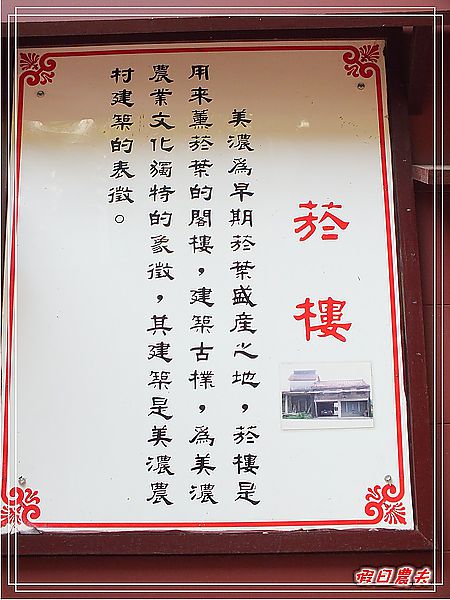 菸樓
美濃為早期菸葉盛產之地，菸樓是
用來薰菸葉的閣樓，建築古樸，為美濃
農業文化獨特的象徵，其建築是美濃農
村建築的表徵。
假日農夫